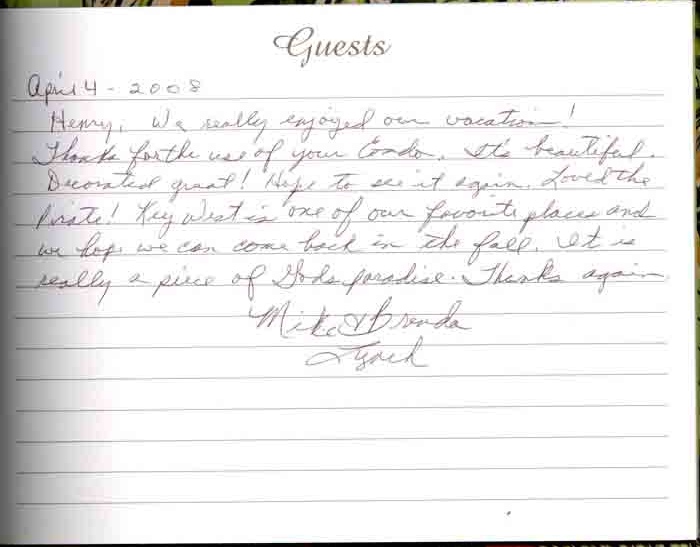 Guests
April 4 - 2008
Henry, We really enjoyed our vacation!
Thanks for the use of your Condo. It's beautiful.
Decorated great! Hope to see it again. Loved the
Pirate! Key West is one of our favorite places and
we hope we can come back in the fall. It is
really a piece of Gods paradise. Thanks again
Mike & Brenda
Lynch